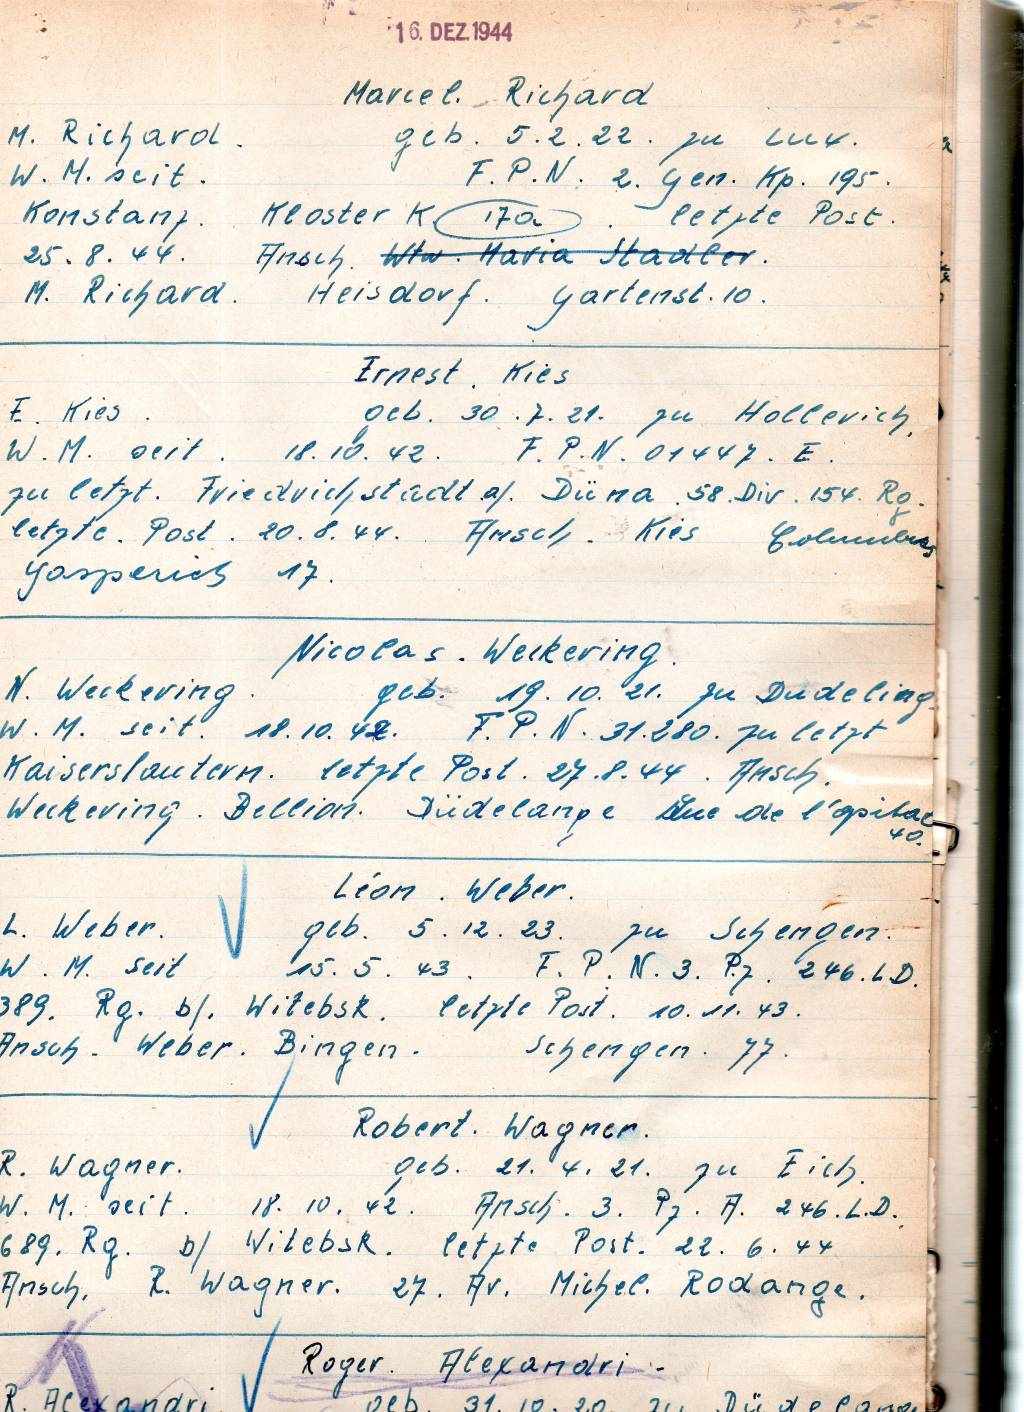 16. DEZ. 1944
Marcel. Richard
M. Richard. geb. 5.2.22. zu Lux.
W. M. seit. F. P. N. 2. Gen. Kp. 195.
Konstanz. Kloster K 17a. letzte Post.
25.8.44. Ansch. Wtw. Maria Stadler.
M. Richard. Heisdorf. Gartenst. 10.
Ernest. Kies
E. Kies. geb. 30.7.21. zu Hollerich.
W. M. seit. 18.10.42. F. P. N. 01447. E.
zu letzt. Friedrichstadt a/. Düna 58. Div. 154. Rg.
letzte. Post. 20.8.44. Ansch. Kies
Gasperich 17.
Nicolas. Weckering.
N. Weckering. geb. 19.10.21. zu Dudeling.
W. M. seit. 18.10.42. F. P. N. 31.280. zu letzt
Kaiserslautern. letzte Post. 27.8.44. Ansch.
Weckering. Bellion. Düdelange Rue de l'opital
40.
Léon. Weber.
L. Weber. geb. 5.12.23. zu Schengen.
W. M. seit 15.5.43. F. P. N. 3. Pz. 246. L.D.
389. Rg. b/. Witebsk. letzte Post. 10.11.43.
Ansch. Weber. Bingen. Schengen. 77.
Robert. Wagner.
R. Wagner. geb. 21.4.21. zu Eich.
W. M. seit. 18.10.42. Ansch. 3. Pz. A. 246. L.D.
689. Rg. b/ Witebsk. letzte Post. 22.6.44
Ansch. R. Wagner. 27. Av. Michel. Rodange.
Roger. Alexandri.-
R. Alexandri. geb. 31.10.20. zu Düdelange